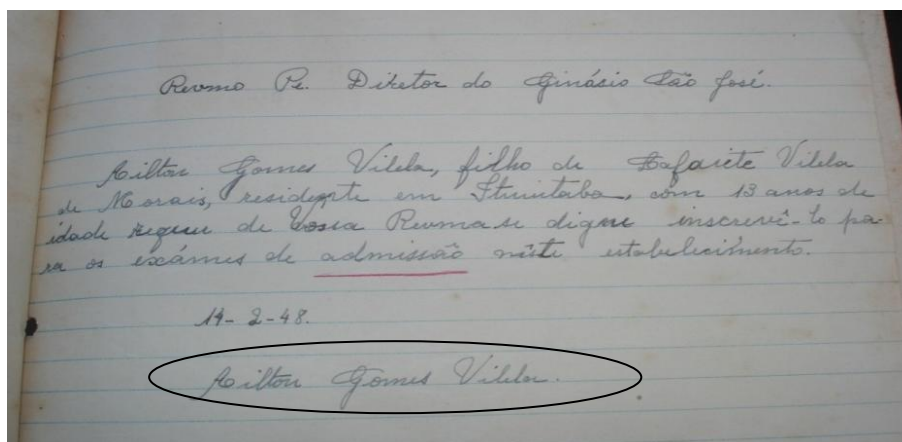 Revmo Pe. Diretor do Ginásio São José.
Ailton Gomes Vilela, filho de Lafaiete Vilela
de Morais, residente em Ituiutaba, com 13 anos de
idade requer de Vossa Revma se digne inscrevê-lo pa-
ra os exámes de admissão nêste estabelecimento.
14-2-48.
Ailton Gomes Vilela.